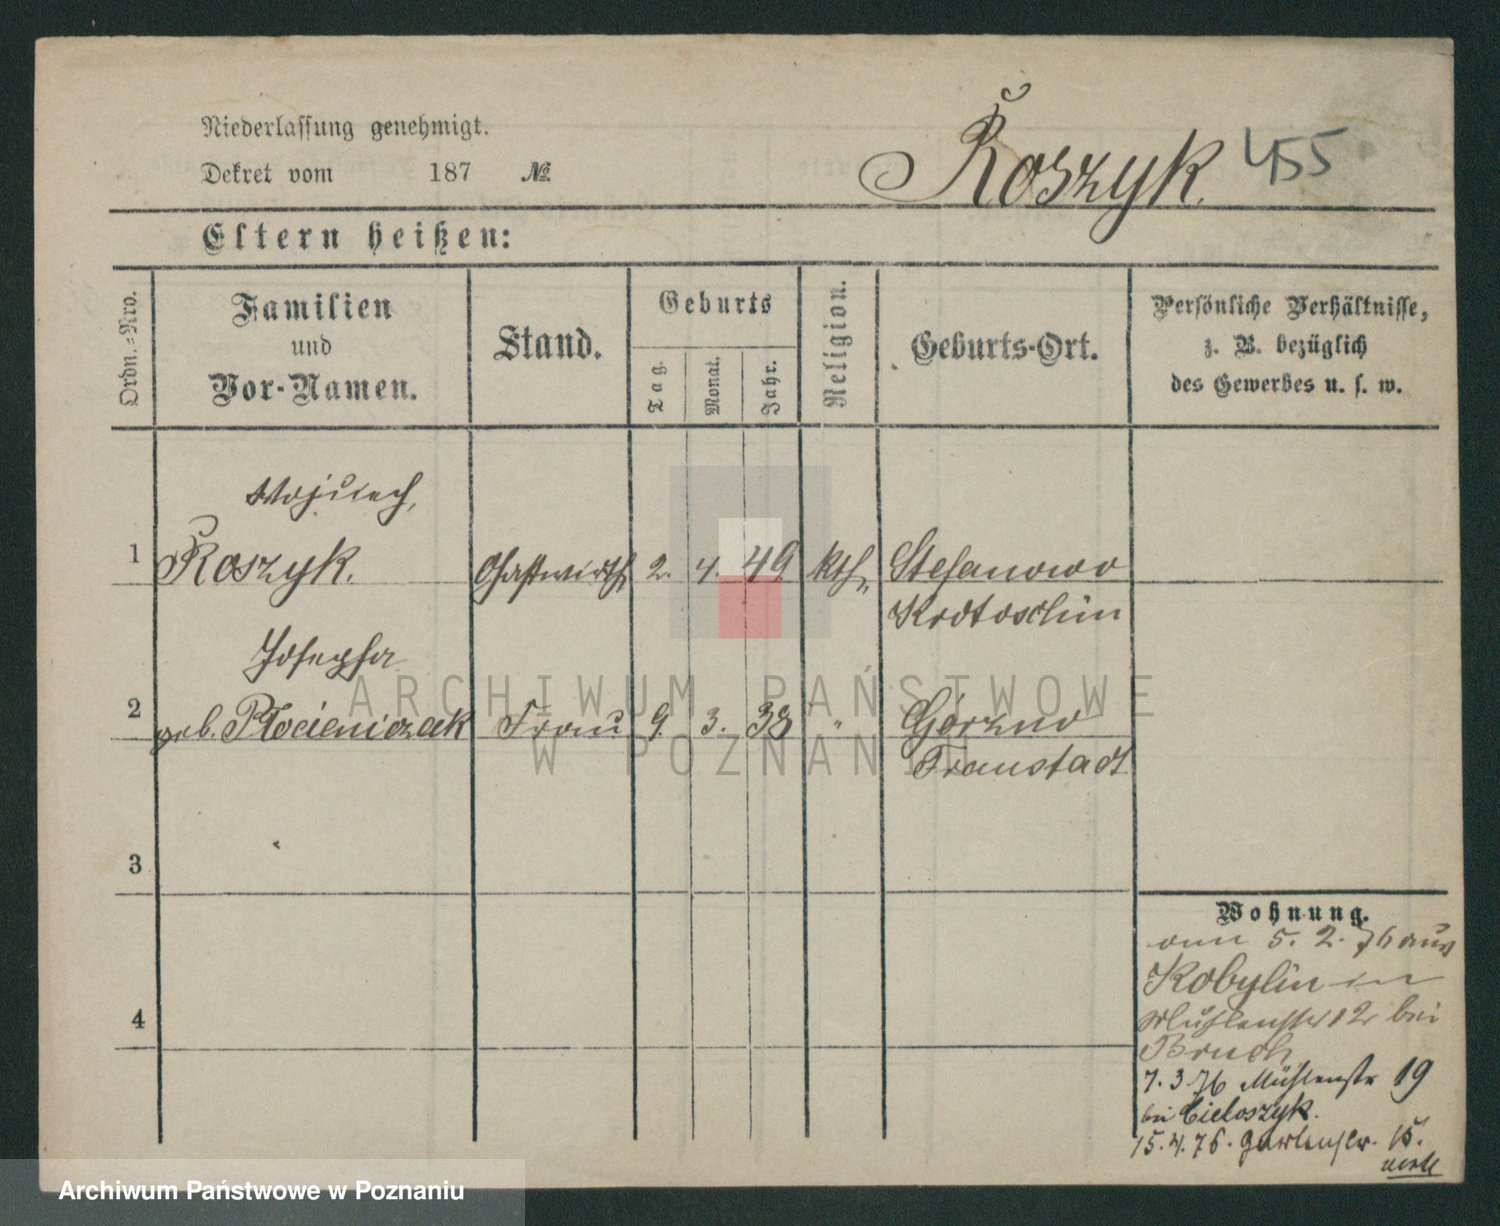 Niederlassung genehmigt.
Dekret vom 187 №
Roszyk. 455
Eltern heißen:
Ordn.-Nro.
Familien
und
Vor-Namen.
Stand.
Geburts
Tag.
Monat.
Jahr.
Religion.
Geburts-Ort.
Persönliche Verhältnisse,
z. B. bezüglich
des Gewerbes u. s. w.
Wojciech,
1 Roszyk. Gastwirth 2. 4. 49 kth. Stefanowo
Krotoschin
Josepha
2 geb. Płocieniczak Frau 9. 3. 38 " Gorzno
Fraustadt
3
4
Wohnung.
5. 2. 76 aus
Kobylin in
Mühlenstr 12 bei
Bruch
7. 3 76 Mühlenstr 19
bei Cieloszyk.
15. 4. 76. Gartenstr. 15.
ARCHIWUM PAŃSTWOWE
W POZNANIU
Archiwum Państwowe w Poznaniu